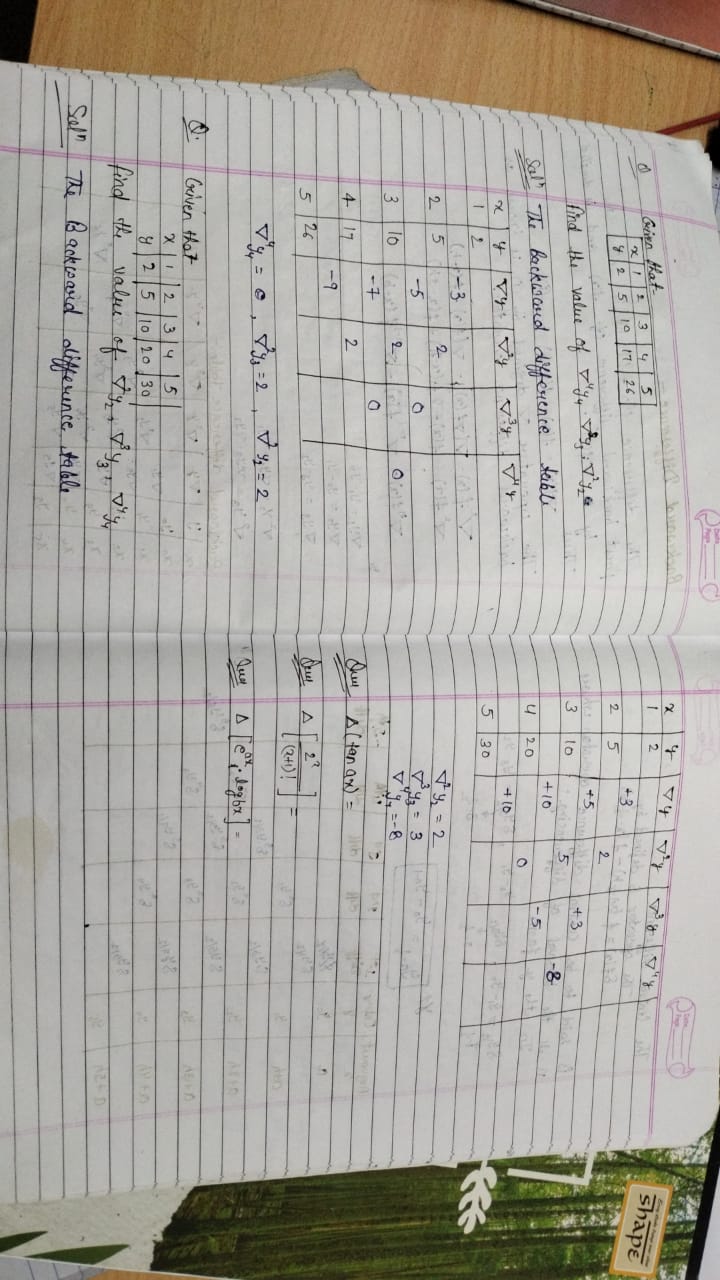 Q Given that
x | 1 | 2 | 3 | 4 | 5
y | 2 | 5 | 10 | 17 | 26
find the value of ∇⁴y₄, ∇²y₃, ∇²y₂
Solⁿ The Backward difference table
x | y | ∇y | ∇²y | ∇³y | ∇⁴y
1 | 2
-3
2 | 5 | 2
-5 | 0
3 | 10 | 2 | 0
-7 | 0
4 | 17 | 2
-9
5 | 26
∇⁴y₄ = 0, ∇²y₃ = 2, ∇²y₂ = 2
Q. Given that
x | 1 | 2 | 3 | 4 | 5
y | 2 | 5 | 10 | 20 | 30
find the value of ∇²y₂, ∇³y₃, ∇⁴y₄
Solⁿ The Backward difference table
Date
Page
x | y | ∇y | ∇²y | ∇³y | ∇⁴y
1 | 2
+3
2 | 5 | 2
+5 | +3
3 | 10 | 5 | -8
+10 | -5
4 | 20 | 0
+10
5 | 30
∇²y₂ = 2
∇³y₃ = 3
∇⁴y₄ = -8
Ques Δ(tan ax) =
Ques Δ[2ˣ/(x+1)!] =
Ques Δ[eᵃˣ · log bx] =
shape